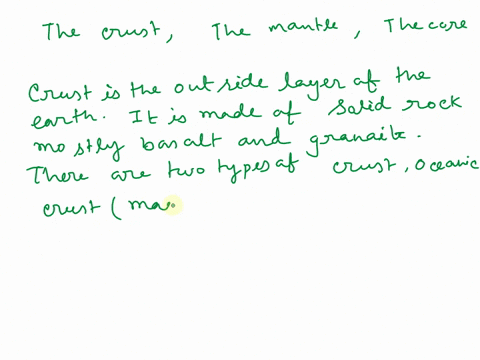 The crust, The mantle, The core
Crust is the outside layer of the
earth. It is made of solid rock
mostly basalt and granaite.
There are two types of crust, oceanic
crust (mar